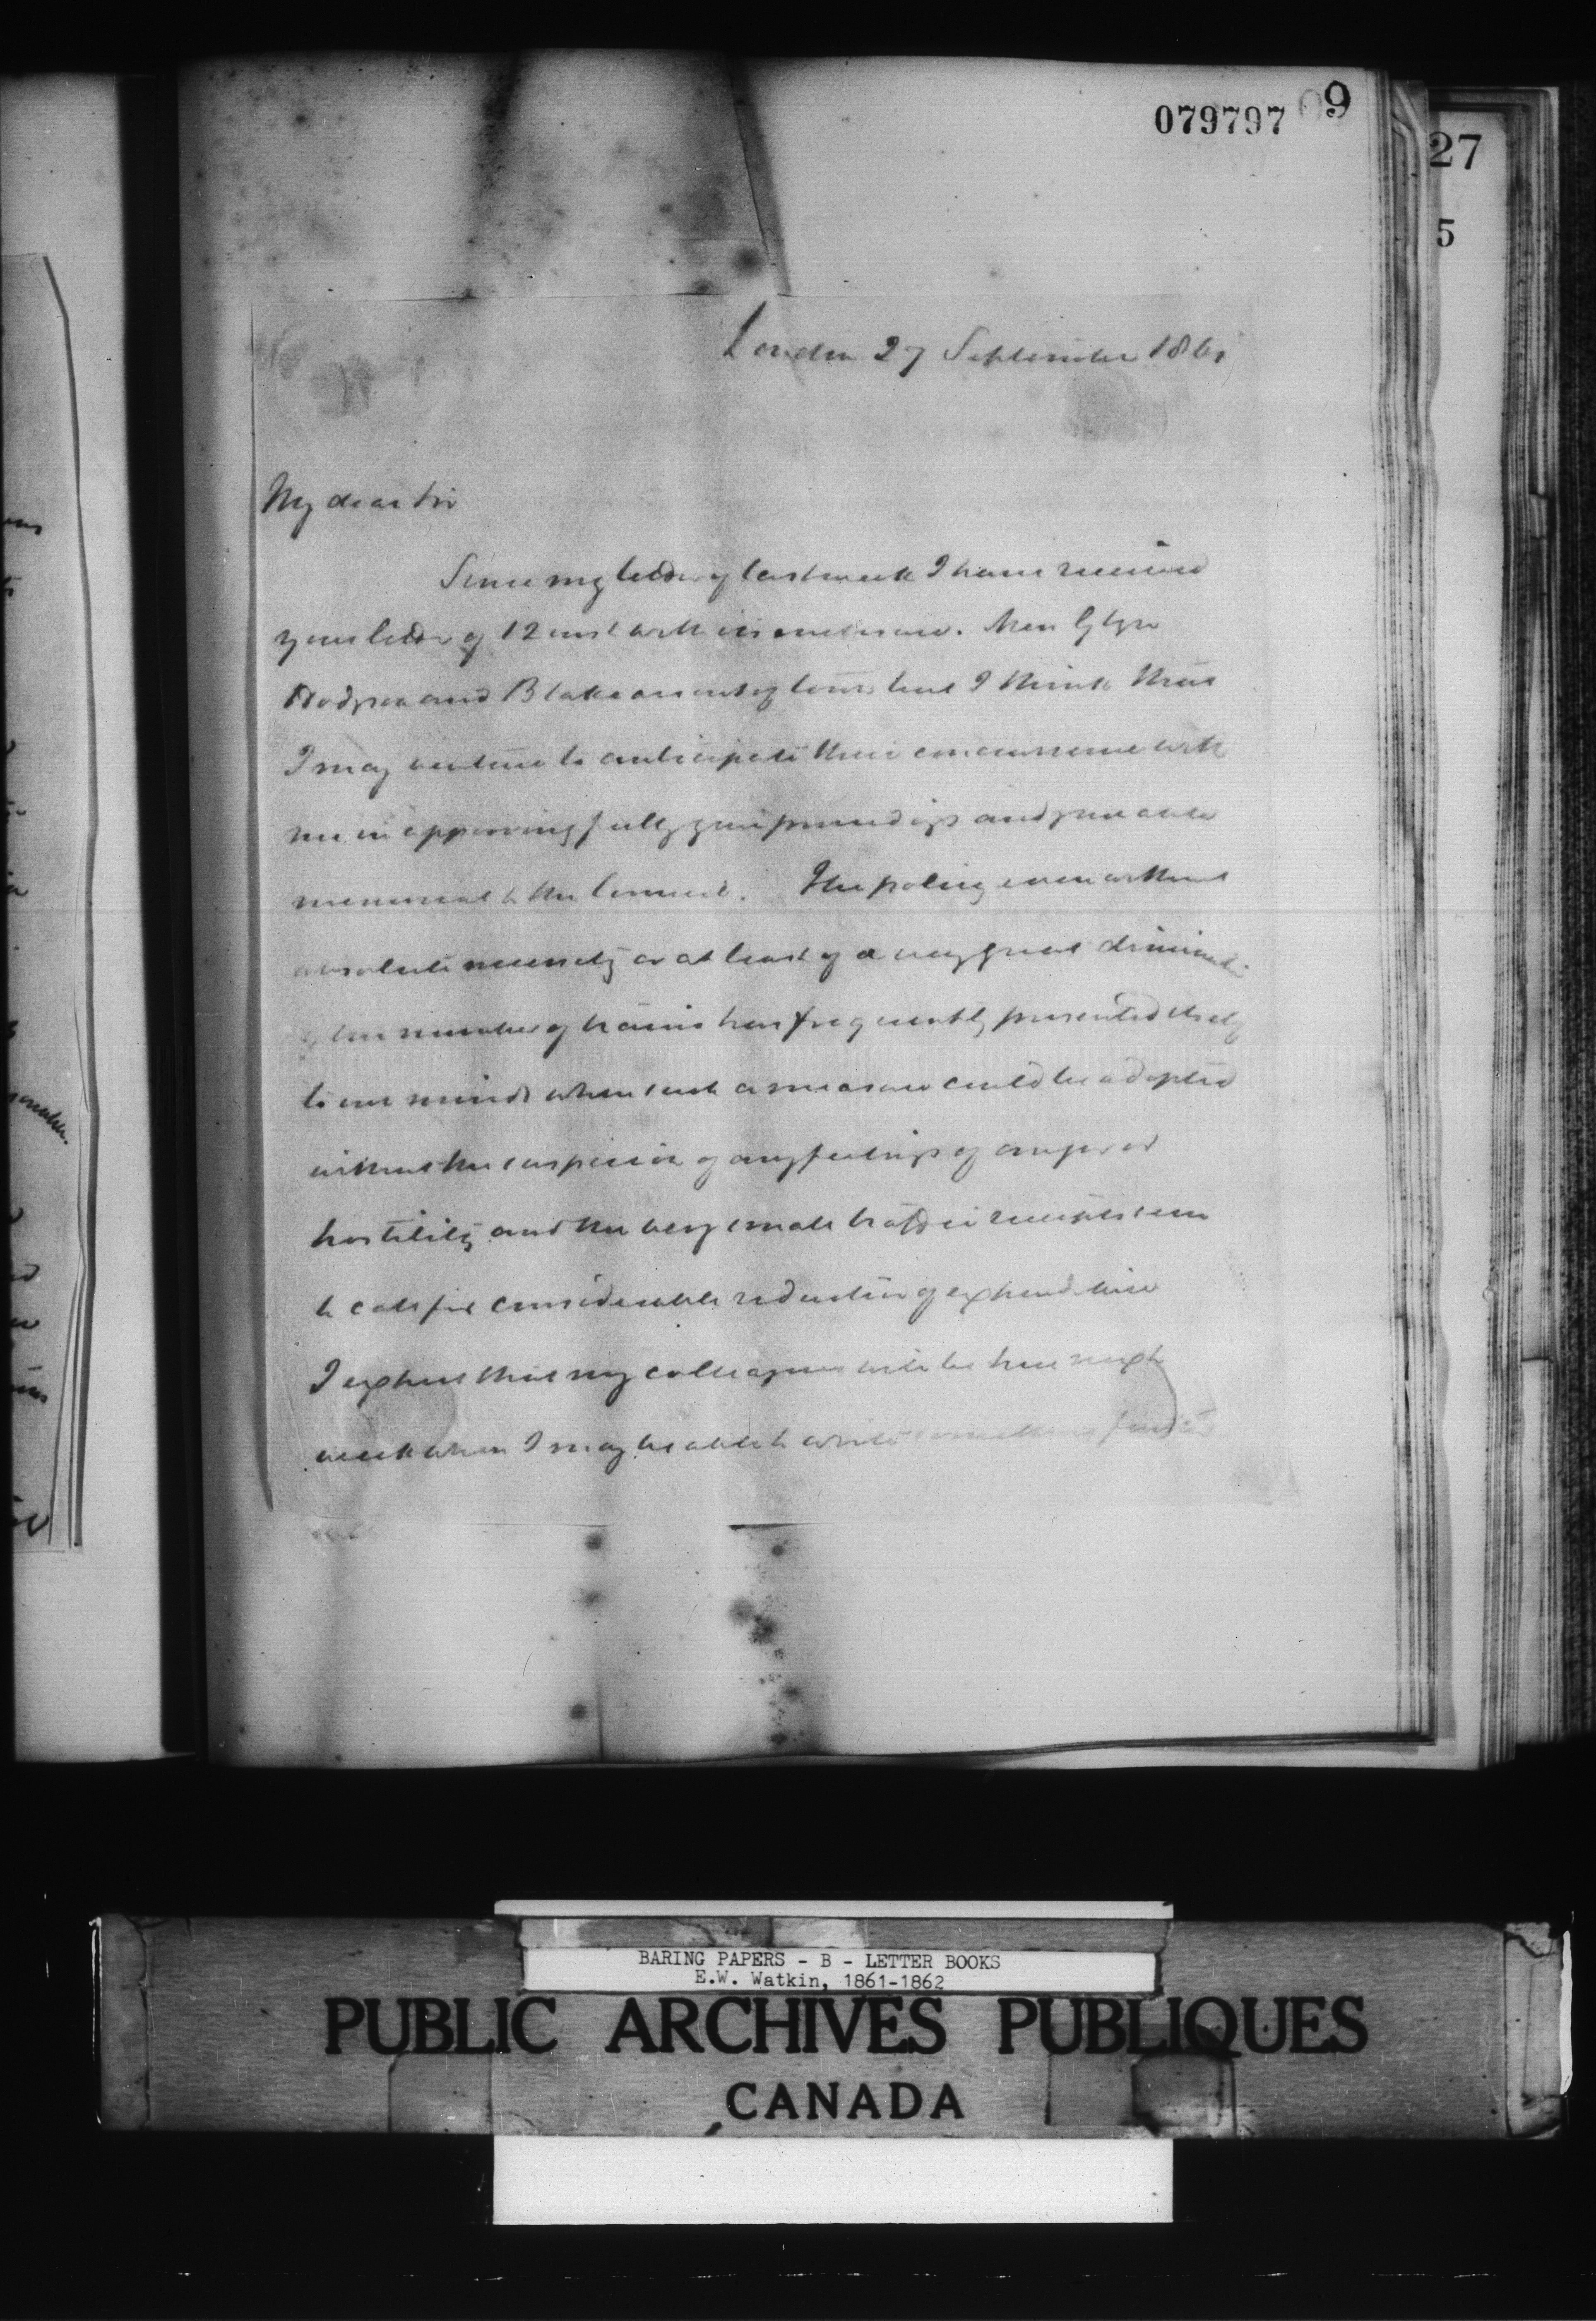 079797
9
27
5
London 27 September 1861
My dear Sir
Since my letter of last week I have received
your letter of 12 inst with its enclosure. Messrs Glyn
Hodgson and Blake are out of town but I think that
I may venture to anticipate their concurrence with
me in approving fully your proceedings and your able
memorial to the Council. The policy even without
absolute necessity or at least of a very great diminution
of the number of trains has frequently presented itself
to our minds when such a measure could be adopted
without the suspicion of any feelings of anger or
hostility and the very small traffic receipts seem
to call for considerable reduction of expenditure
I expect that my colleagues will be here next
week when I may be able to write something further
BARING PAPERS - B - LETTER BOOKS
E.W. Watkin, 1861-1862
PUBLIC ARCHIVES PUBLIQUES
CANADA